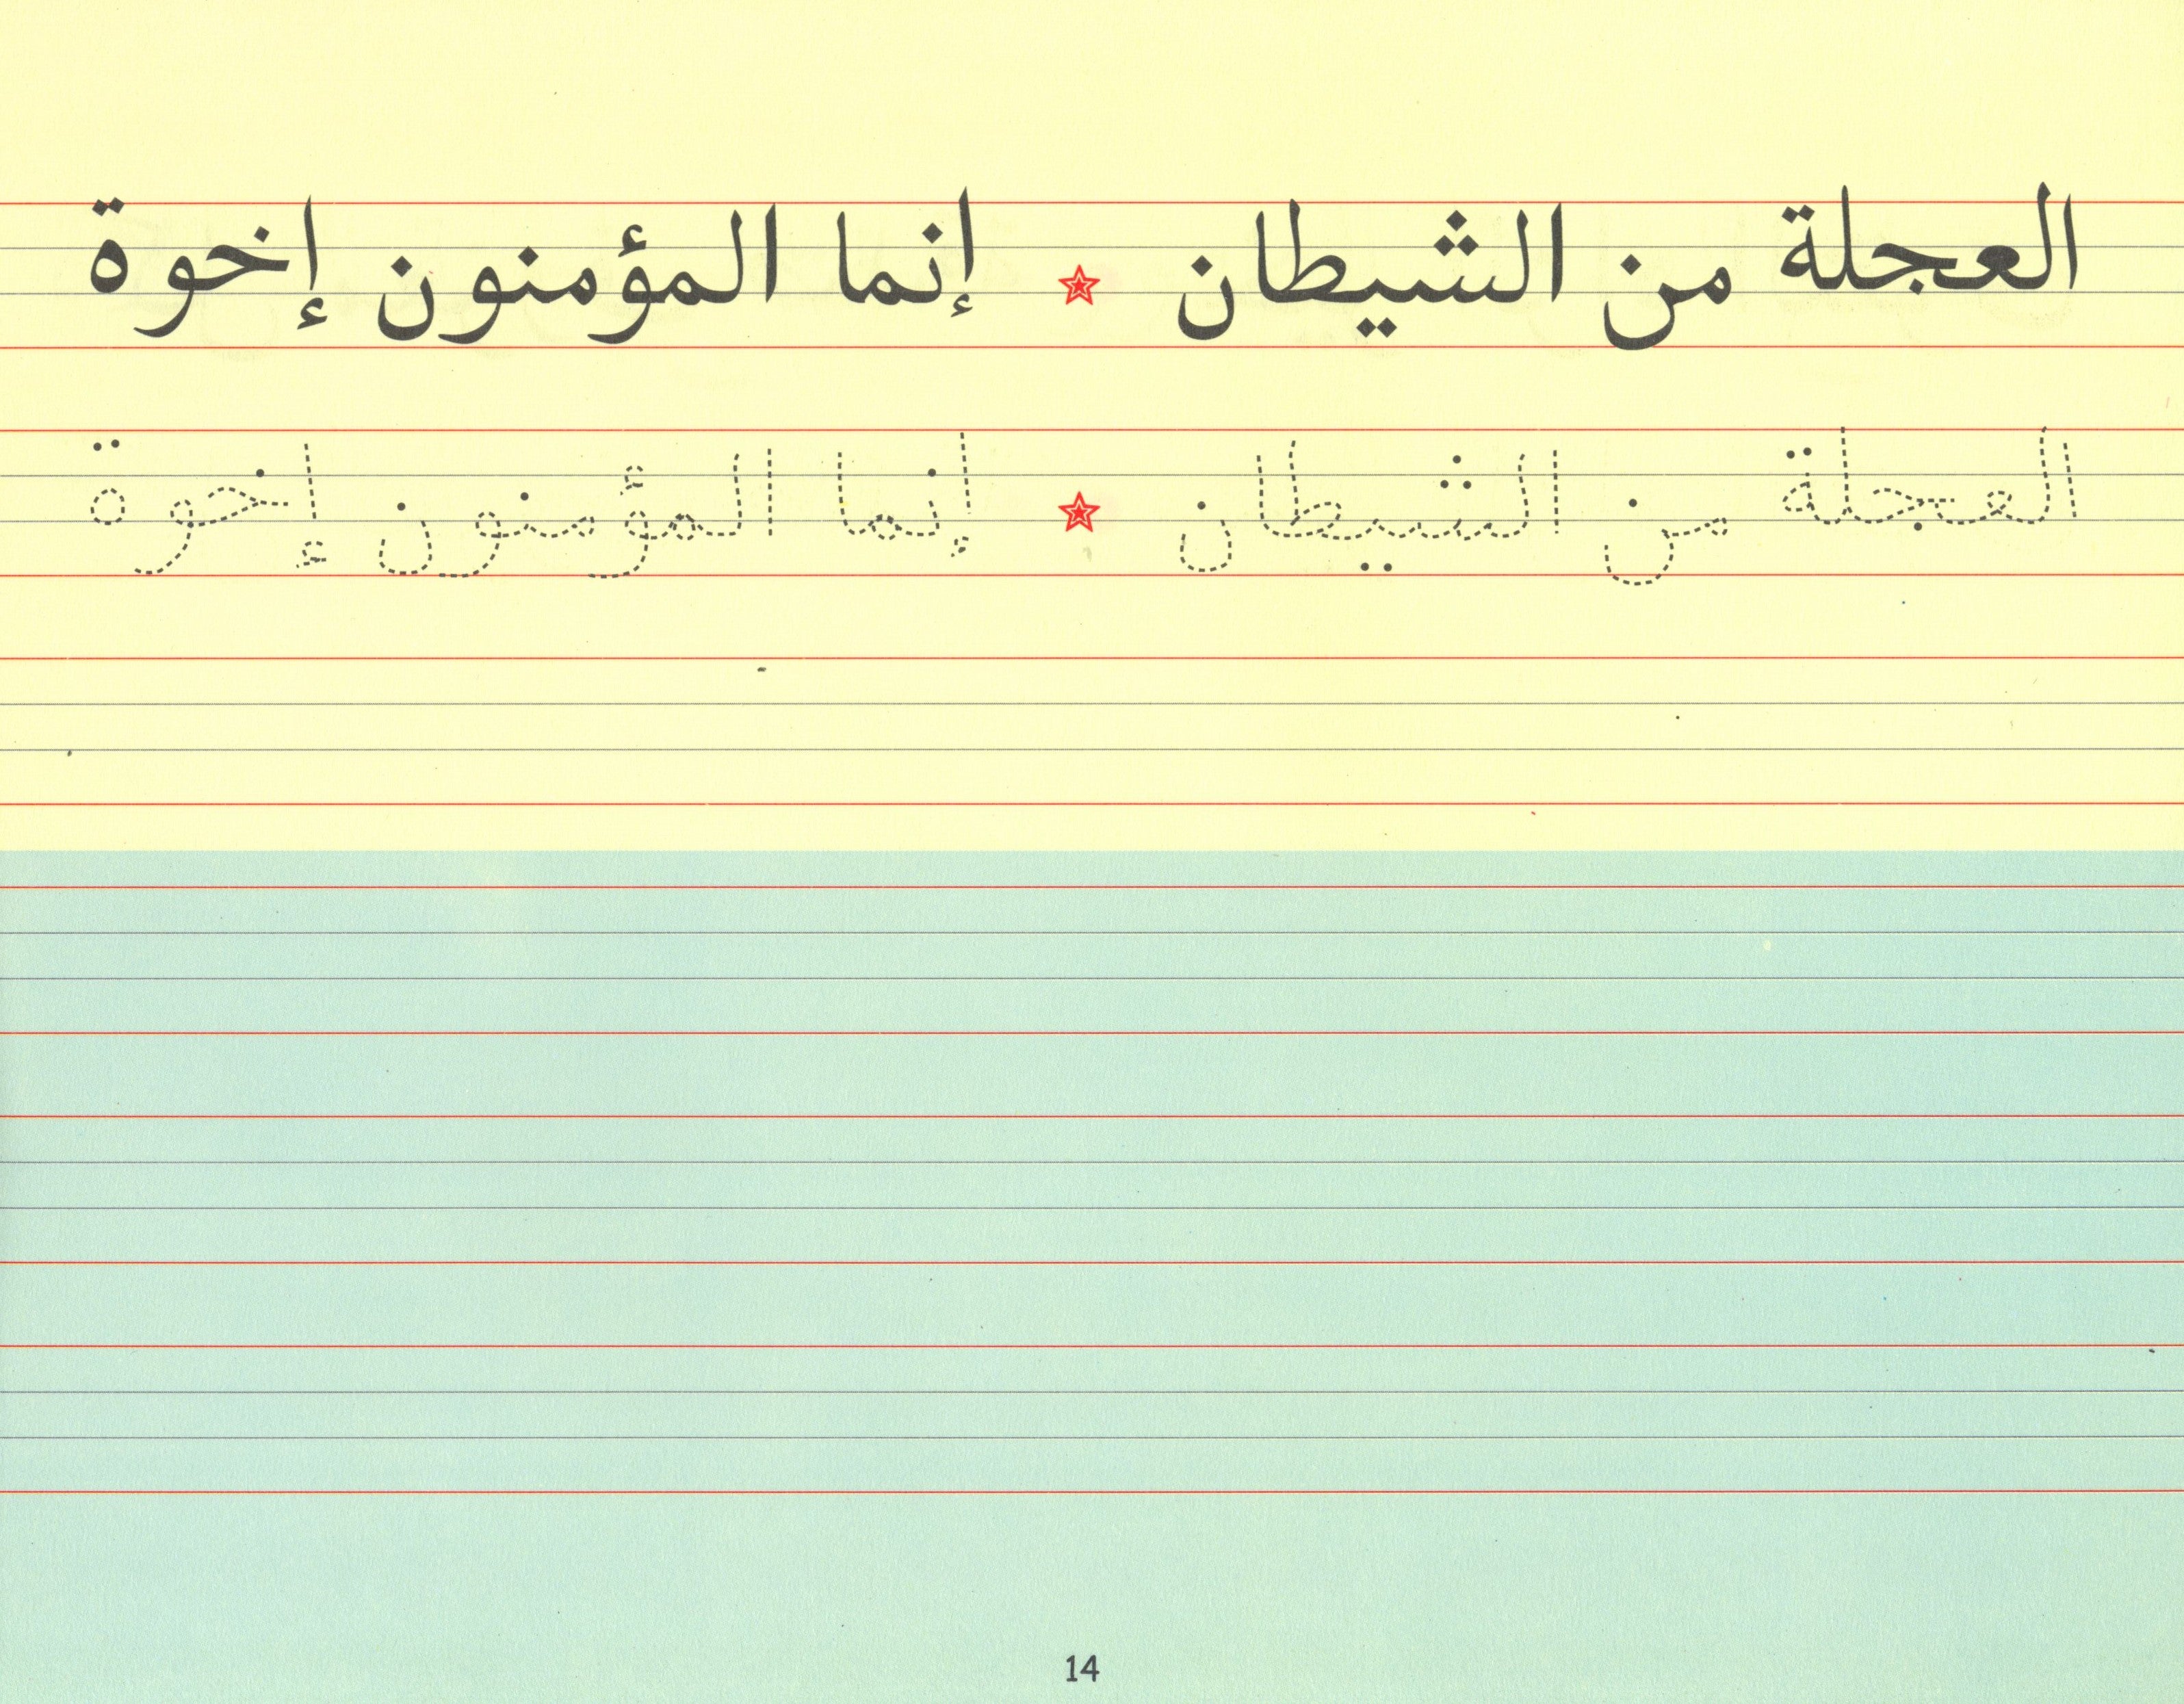 العجلة من الشيطان ☆ إنما المؤمنون إخوة
العجلة من الشيطان ☆ إنما المؤمنون إخوة
14